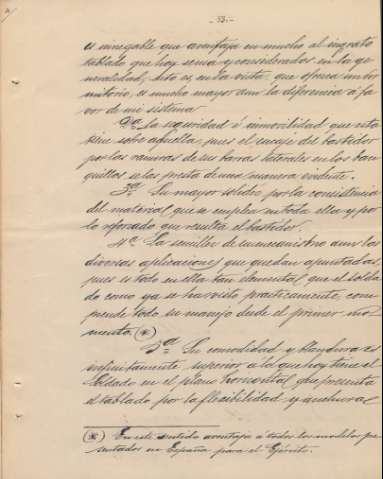 - 33. -
es innegable que aventaja en mucho al ingrato
tablado que hoy se usa y considerados en la ge
neralidad, esto es, en la vista que ofrece un dor
mitorio, es mucho mayor aun la diferencia á fa
vor de mi sistema
2ª La seguridad é inmovilidad que esta
tiene sobre aquella, pues el encaje del bastidor
por las ranuras de sus barras laterales en los ban
quillos se las presta de una manera evidente.
3ª Su mayor solidez por la consistencia
del material que se emplea en toda ella y por
lo reforzado que resulta el bastidor.
4ª La sencillez de su mecanismo aun las
diversas aplicaciones que quedan apuntadas,
pues es todo en ella tan elemental que el solda
do como ya se ha visto practicamente, com
prende todo su manejo desde el primer mo
mento. (*)
5ª Su comodidad y blandura es
infinitamente superior a la que hoy tiene el
Soldado en el plano horizontal que presenta
el tablado por la flexibilidad y anchura
(*) En este sentido aventaja á todos los modelos pre
sentados en España para el Ejército.